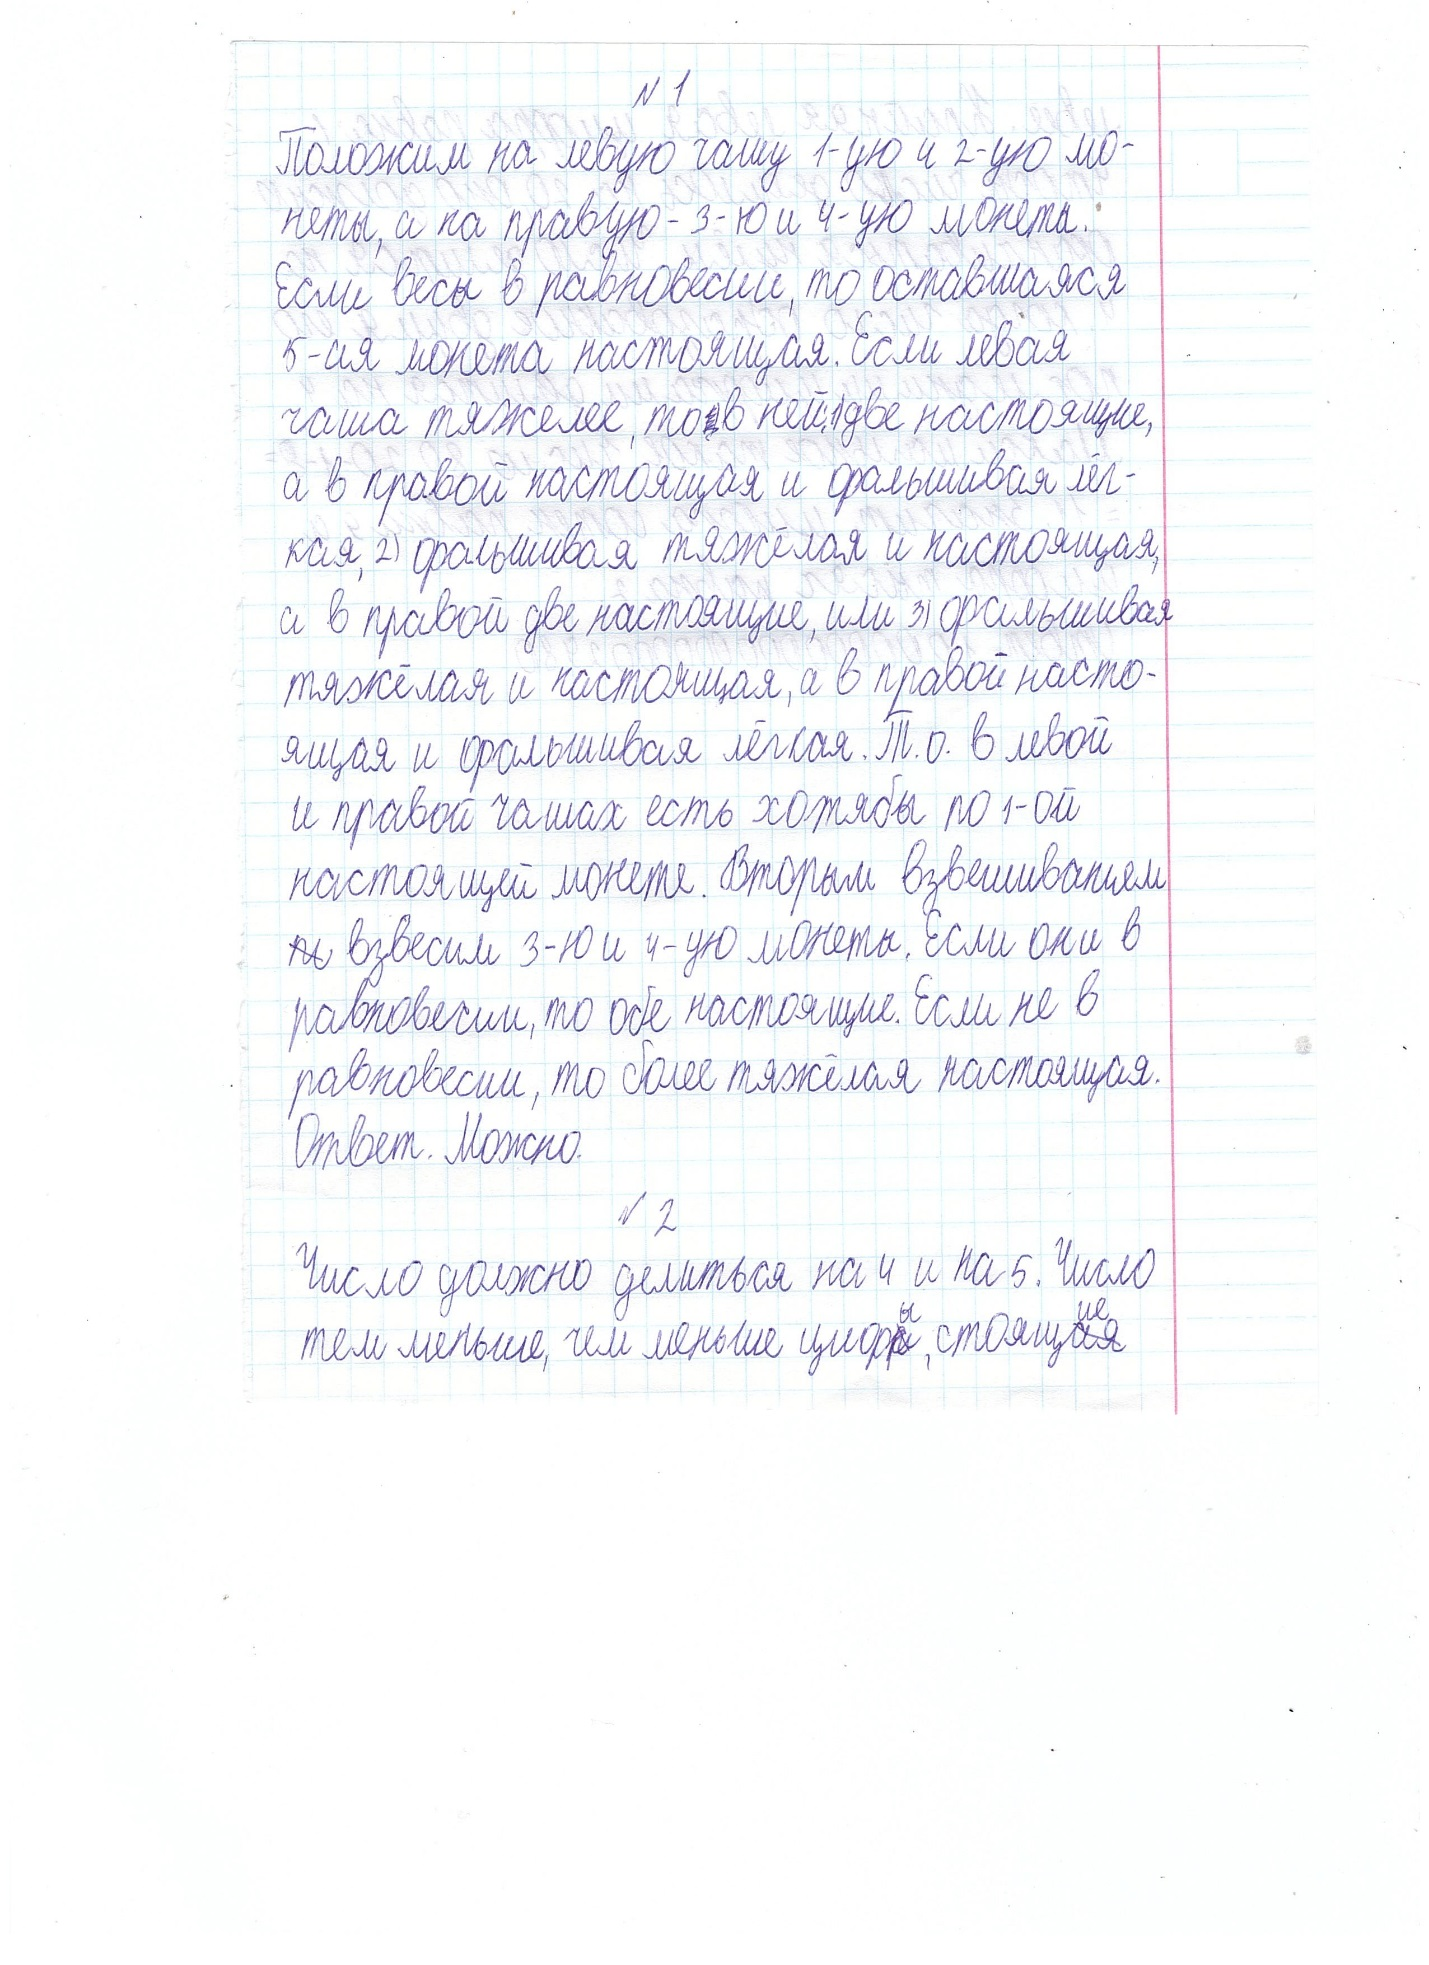 № 1
Положим на левую чашу 1-ую и 2-ую мо-
неты, а на правую - 3-ю и 4-ую монеты.
Если весы в равновесии, то оставшаяся
5-ая монета настоящая. Если левая
чаша тяжелее, то в ней: 1) две настоящие,
а в правой настоящая и фальшивая лёг-
кая, 2) фальшивая тяжёлая и настоящая,
а в правой две настоящие, или 3) фальшивая
тяжёлая и настоящая, а в правой насто-
ящая и фальшивая лёгкая. Т.о. в левой
и правой чашах есть хотябы по 1-ой
настоящей монете. Вторым взвешиванием
взвесим 3-ю и 4-ую монеты. Если они в
равновесии, то обе настоящие. Если не в
равновесии, то более тяжёлая настоящая.
Ответ. Можно.
№ 2
Число должно делиться на 4 и на 5. Число
тем меньше, чем меньше цифры, стоящие